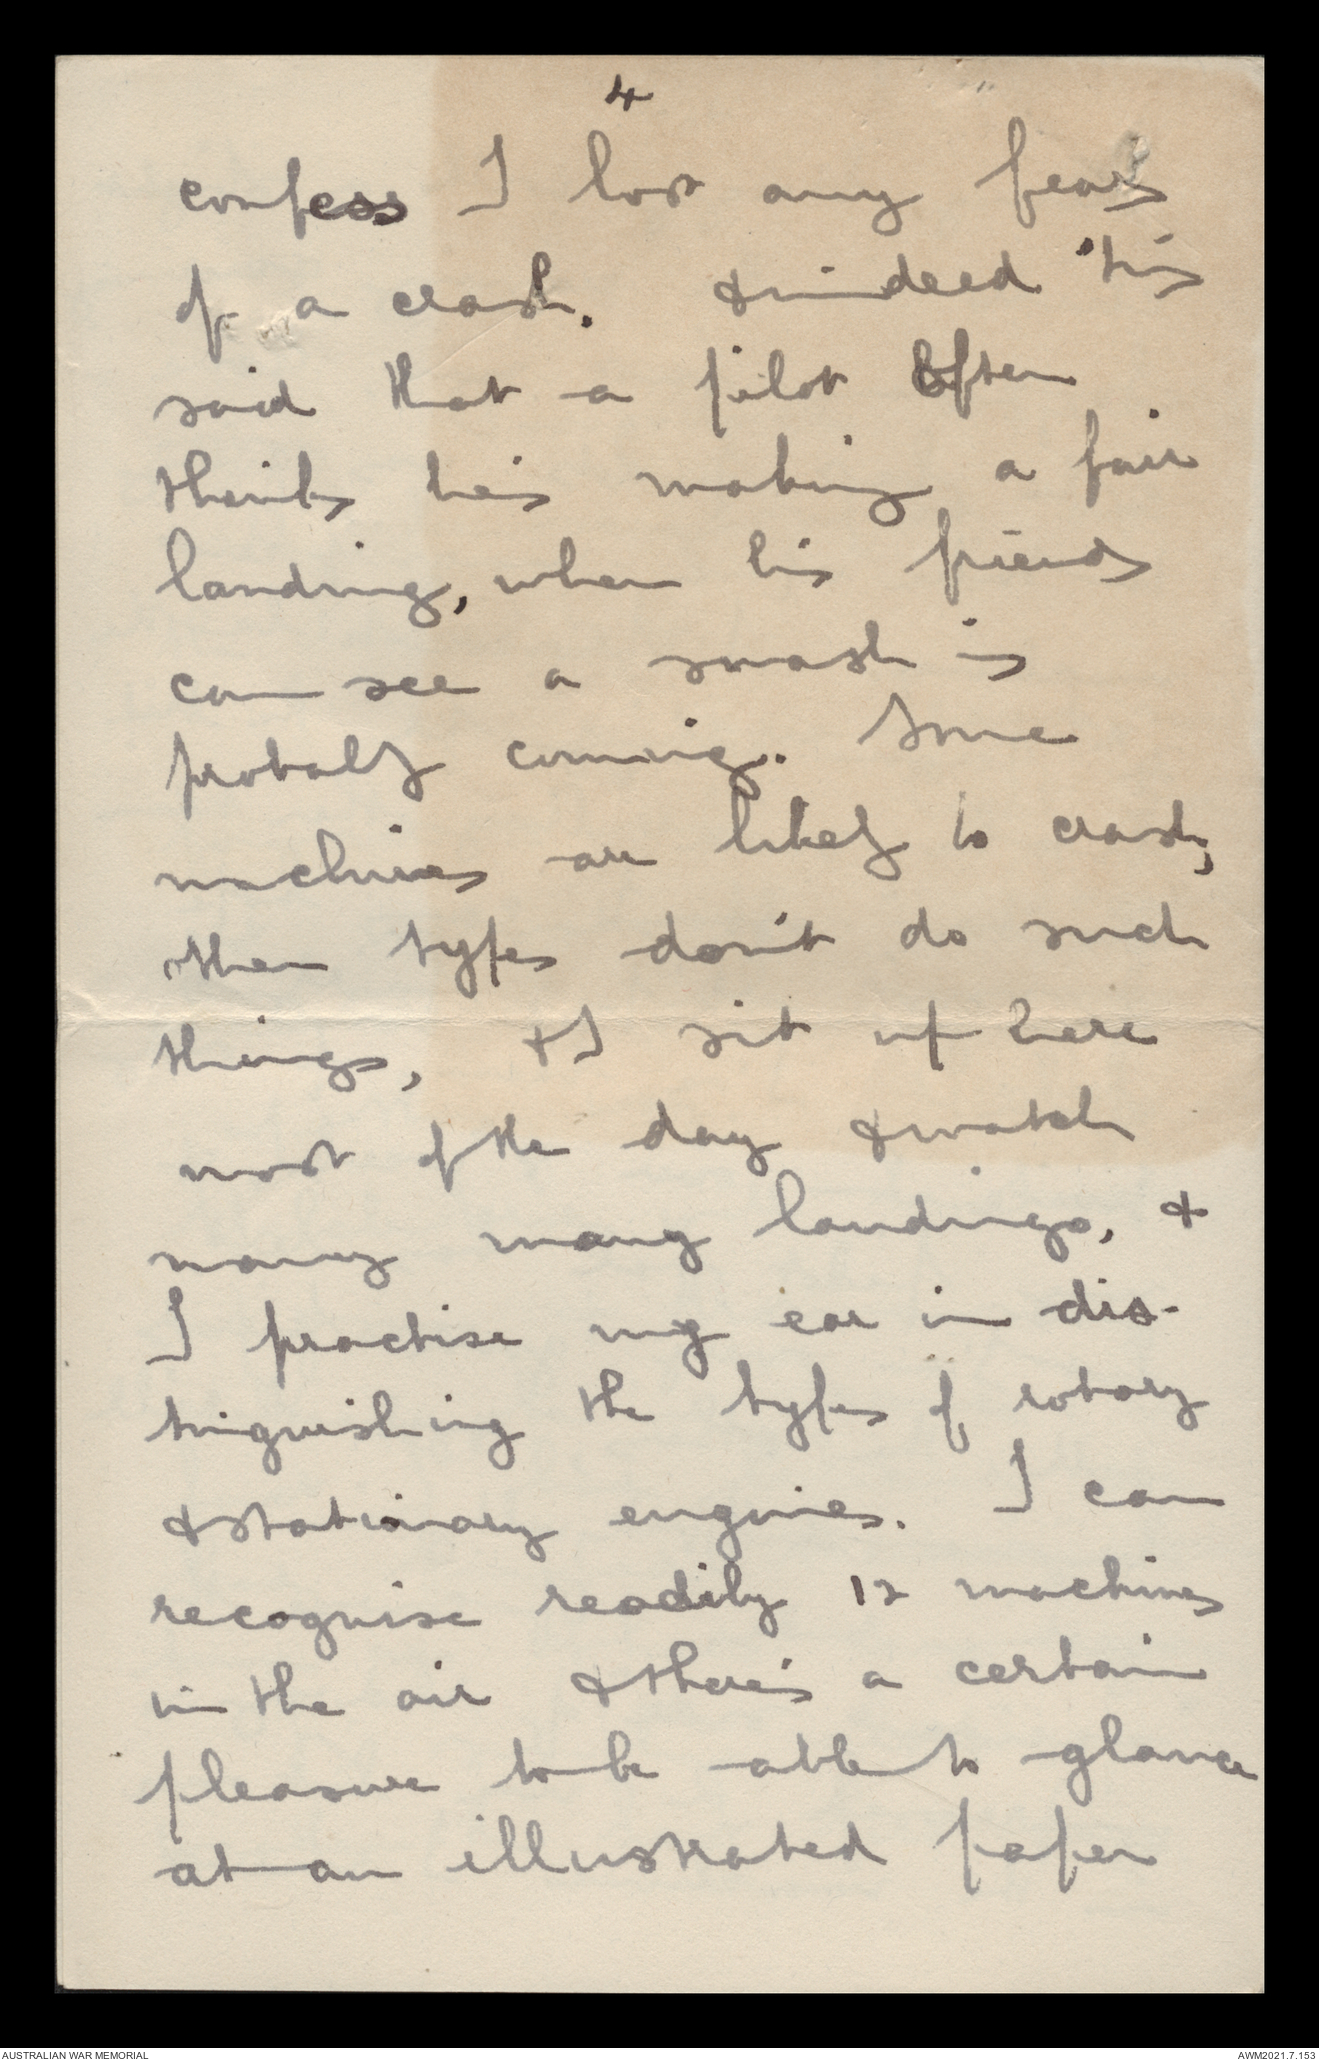 4
confess I lost any fears
of a crash. & indeed 'tis
said that a pilot often
thinks he's making a fair
landing, when his friends
can see a smash is
probably coming. Some
machines are likely to crash,
other types don't do such
things, & I sit up here
most of the day & watch
many many landings, &
I practise my ear in dis-
tinguishing the types of rotary
& stationary engines. I can
recognise readily 12 machines
in the air & there's a certain
pleasure to be able to glance
at an illustrated paper
AUSTRALIAN WAR MEMORIAL
AWM2021.7.153